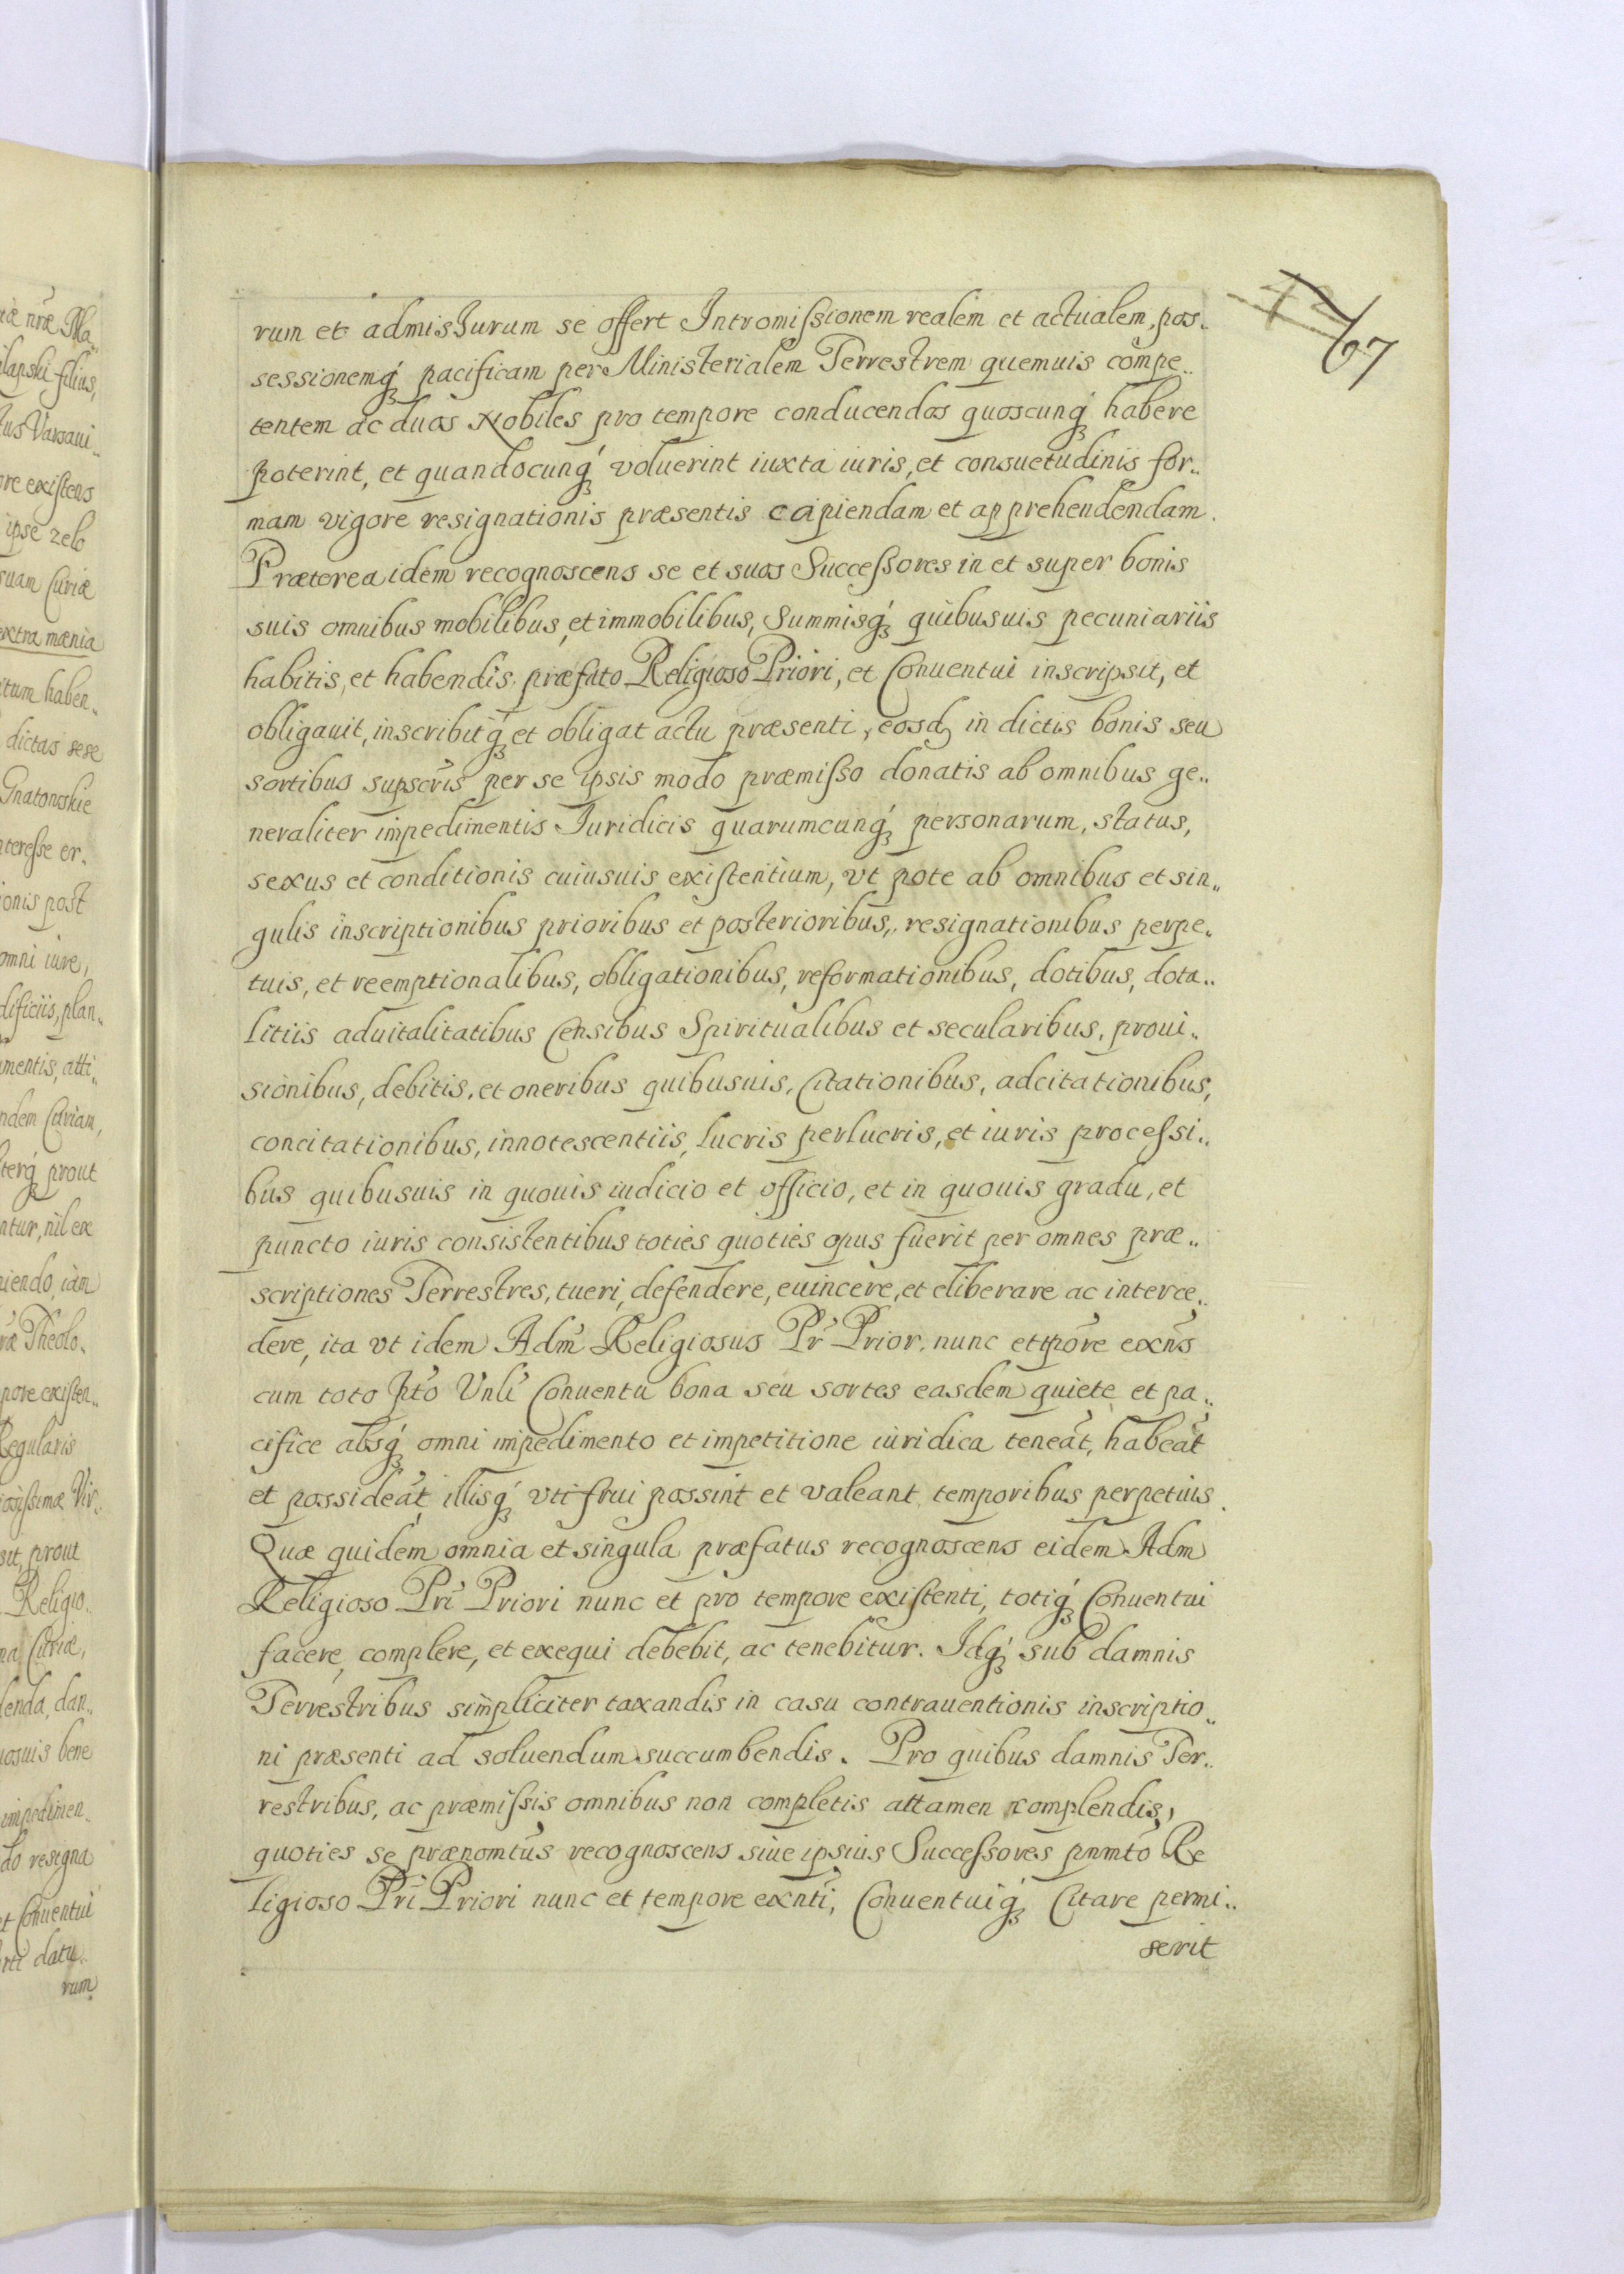 67
rum et admisJurum se offert Intromißionem realem et actualem, pos..
sessionemq́ʒ pacificam per Ministerialem Terrestrem quemuis compe..
tentem ac duos Nobiles pro tempore conducendos quoscunq́ʒ habere
poterint, et quandocunq́ʒ voluerint iuxta iuris, et consuetudinis for..
mam vigore resignationis præsentis capiendam et apprehendendam.
Præterea idem recognoscens se et suos Succeßores in et super bonis
suis omnibus mobilibus, et immobilibus, Summisq́ʒ quibusuis pecuniariis
habitis, et habendis præfato Religioso Priori, et Conuentui inscripsit, et
obligauit, inscribitq́ʒ et obligat actu præsenti, eosdʒ in dictis bonis seu
sortibus supscr̃is per se ipsis modo præmißo donatis ab omnibus ge..
neraliter impedimentis Iuridicis quarumcunq́ʒ personarum, status,
sexus et conditionis cuiusuis existentium, vt pote ab omnibus et sin..
gulis inscriptionibus prioribus et posterioribus, resignationibus perpe..
tuis, et reemptionalibus, obligationibus, reformationibus, dotibus, dota..
litiis aduitalitatibus Censibus Spiritualibus et secularibus, proui..
sionibus, debitis, et oneribus quibusuis, Citationibus, adcitationibus,
concitationibus, innotescentiis, lucris perlucris, et iuris proceßi..
bus quibusuis in quouis iudicio et officio, et in quouis gradu, et
puncto iuris consistentibus toties quoties opus fuerit per omnes præ..
scriptiones Terrestres, tueri, defendere, euincere, et eliberare ac interce..
dere, ita vt idem Adm̃ Religiosus Pr̃ Prior nunc et tp̃ore exñs
cum toto p̃to Vnli̾ Conuentu bona seu sortes easdem quiete et pa..
cifice absq́ʒ omni impedimento et impetitione iuridica teneãt, habeãt
et possideãt, illisq́ʒ vti frui possint et valeant temporibus perpetuis.
Quæ quidem omnia et singula præfatus recognoscens eidem Adm
Religioso Pr̃i Priori nunc et pro tempore existenti, totiq́ʒ Conuentui
facere, complere, et exequi debebit, ac tenebitur. Idq́ʒ sub damnis
Terrestribus simpliciter taxandis in casu contrauentionis inscriptio..
ni præsenti ad soluendum succumbendis. Pro quibus damnis Ter..
restribus, ac præmißis omnibus non completis attamen complendis,
quoties se prænomt̃us recognoscens siue ipsius Succeßores pnmt̃o Re
ligioso Pr̃i Priori nunc et tempore exñti, Conuentuiq́ʒ Citare permi..
serit